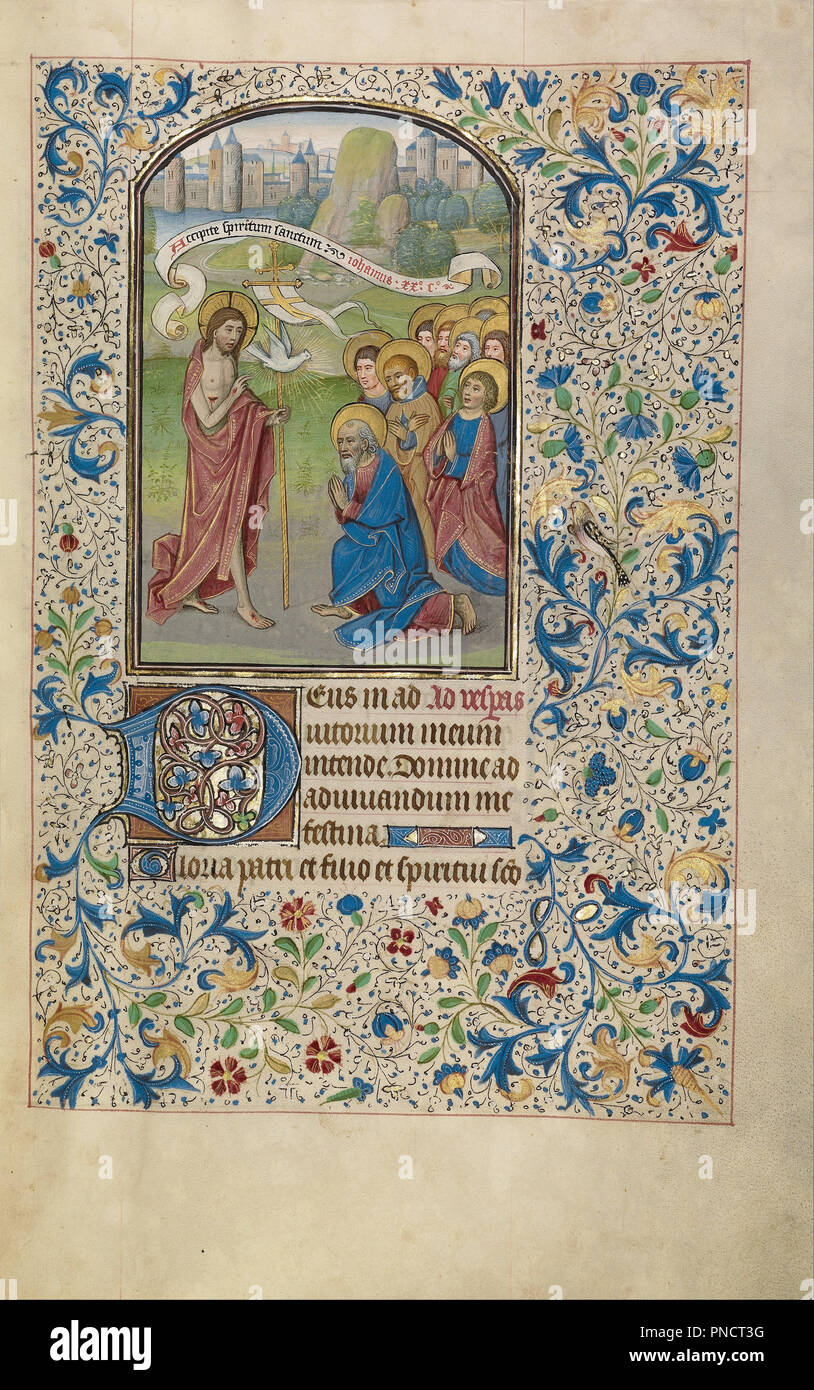 Accipite spiritum sanctum iohannis · xx° · c°
Eus in ad Ad vespas
iutorium meum
intende. Domine ad
adiuuandum me
festina
Gloria patri et filio et spiritui sco
alamy
Image ID: PNCT3G
www.alamy.com